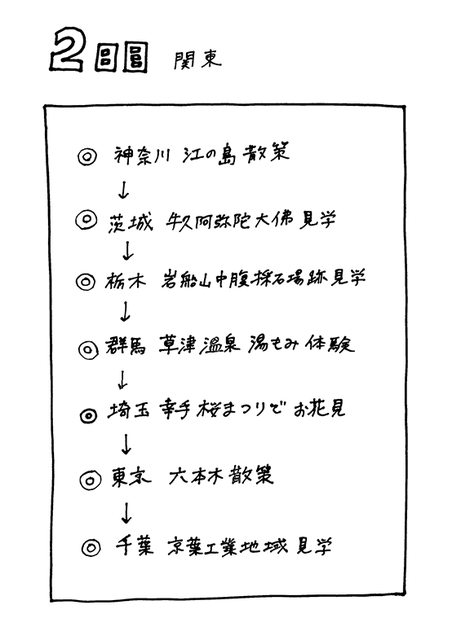 2日目 関東
◎ 神奈川 江の島散策
↓
◎ 茨城 牛久阿弥陀大佛見学
↓
◎ 栃木 岩船山中腹採石場跡見学
↓
◎ 群馬 草津温泉 湯もみ体験
↓
◎ 埼玉 幸手桜まつりでお花見
↓
◎ 東京 六本木散策
↓
◎ 千葉 京葉工業地域見学